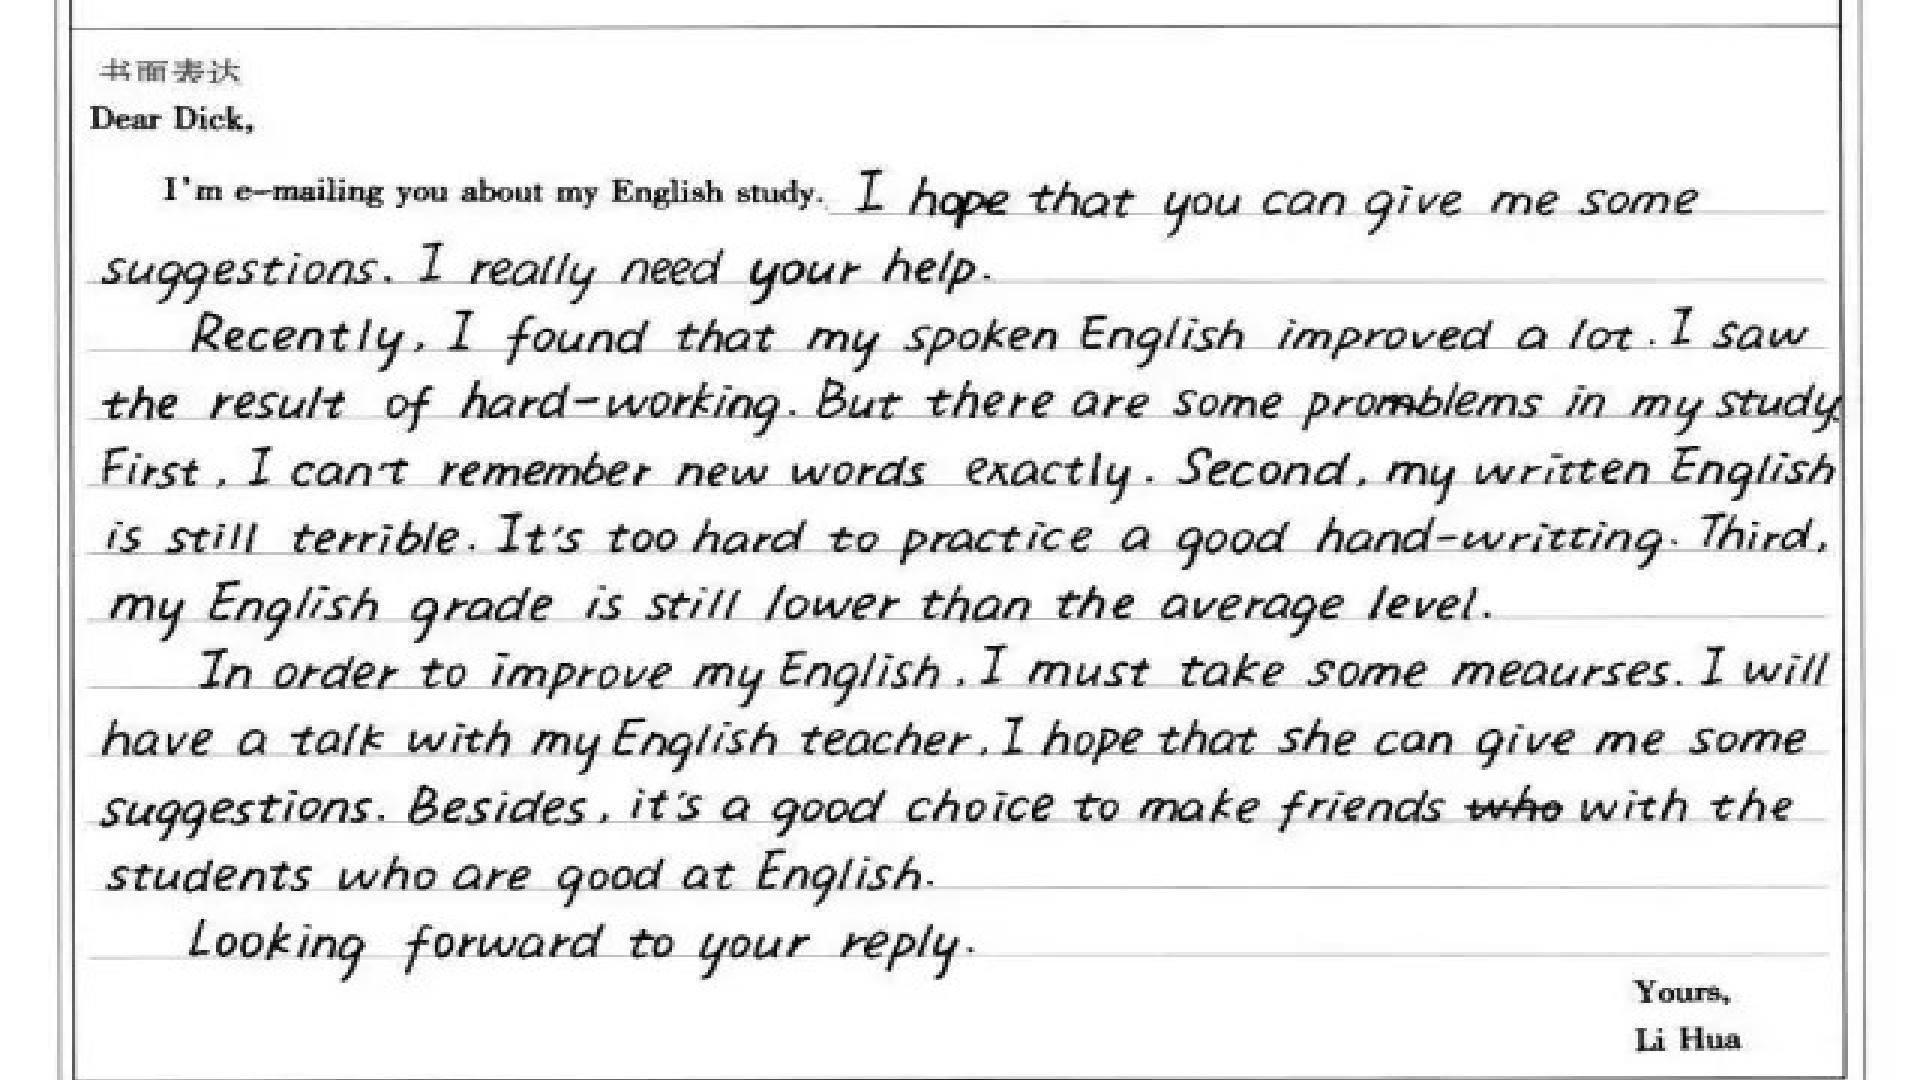 书面表达
Dear Dick,
I'm e-mailing you about my English study. I hope that you can give me some
suggestions. I really need your help.
Recently, I found that my spoken English improved a lot. I saw
the result of hard-working. But there are some promblems in my study.
First, I can't remember new words exactly. Second, my written English
is still terrible. It's too hard to practice a good hand-writting. Third,
my English grade is still lower than the average level.
In order to improve my English, I must take some meaurses. I will
have a talk with my English teacher, I hope that she can give me some
suggestions. Besides, it's a good choice to make friends who with the
students who are good at English.
Looking forward to your reply.
Yours,
Li Hua